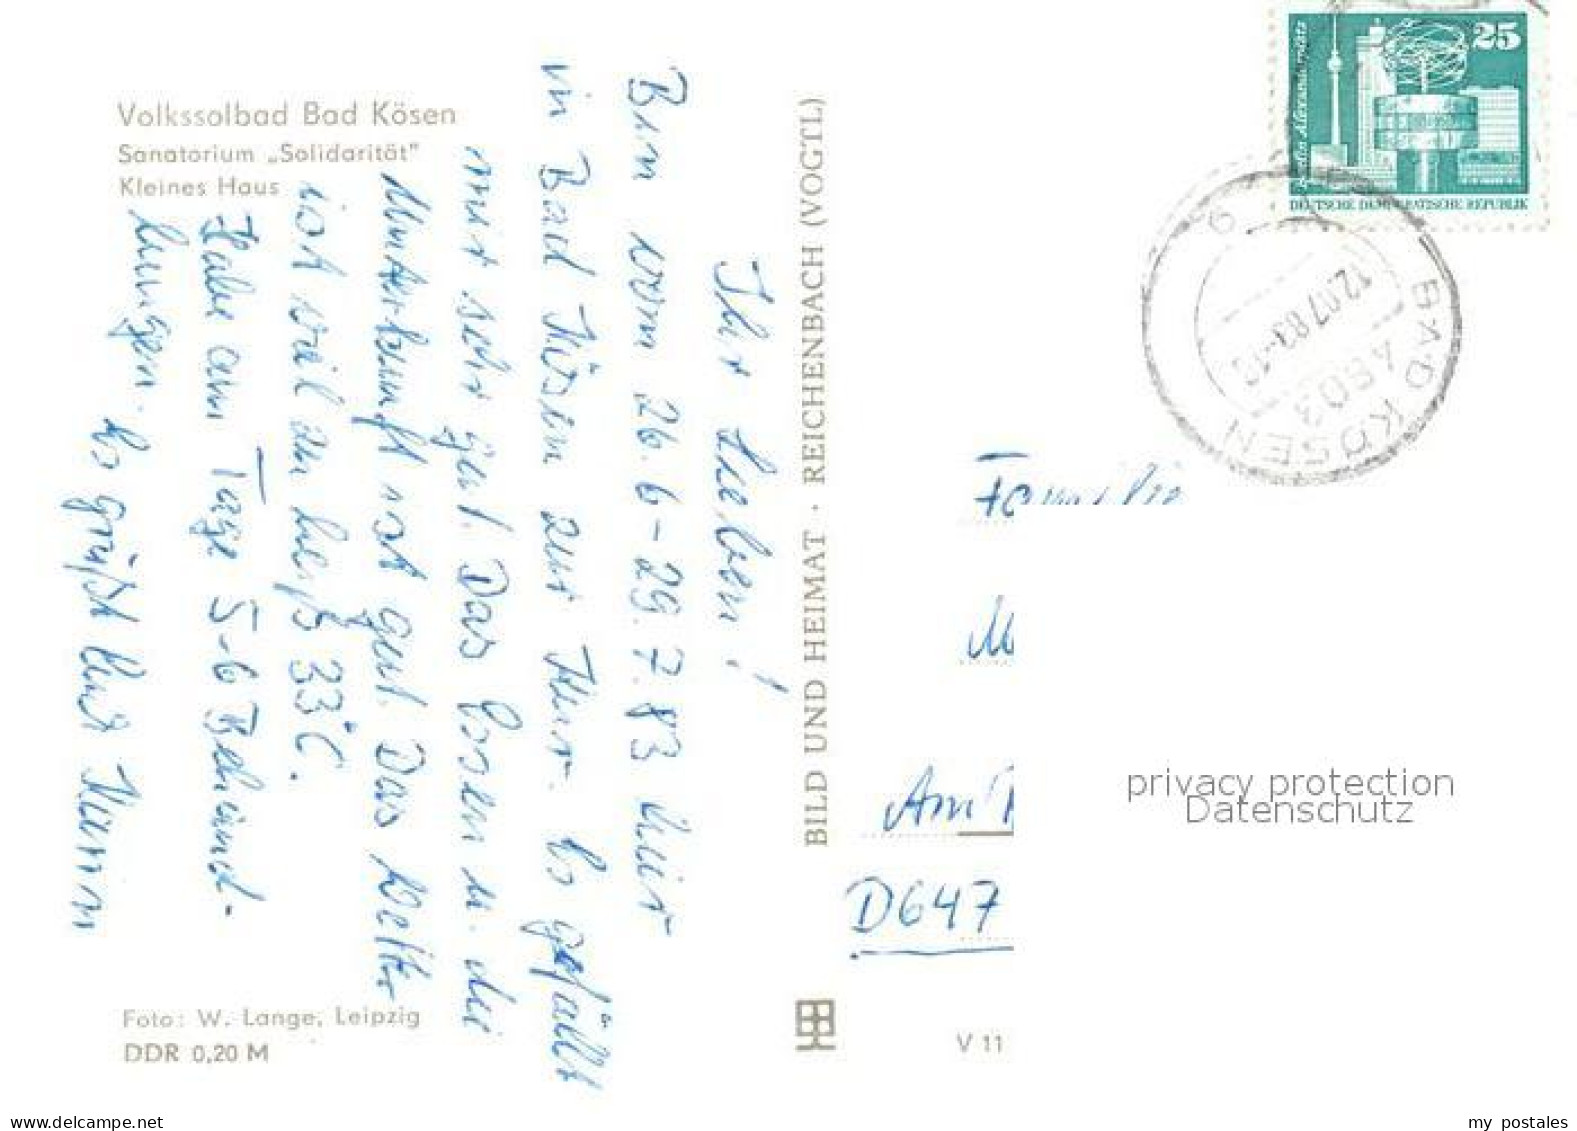 Volkssolbad Bad Kösen
Sanatorium „Solidarität"
Kleines Haus
Ihr Lieben!
Bin vom 26.6-29.7.83 hier
in Bad Kösen zur Kur. Es gefällt
mir sehr gut. Das Essen u. die
Unterkunft ist gut. Das Wetter
ist viel zu heiß 33°C.
Habe am Tage 5-6 Behand-
lungen. Es grüßt Euch
Foto: W. Lange, Leipzig
DDR 0,20 M
BILD UND HEIMAT · REICHENBACH (VOGTL)
V 11
25
Berlin Alexanderplatz
DEUTSCHE DEMOKRATISCHE REPUBLIK
BAD KÖSEN
4803
12.07.83
Familie
Am
D647
privacy protection
Datenschutz
www.delcampe.net
my_postales